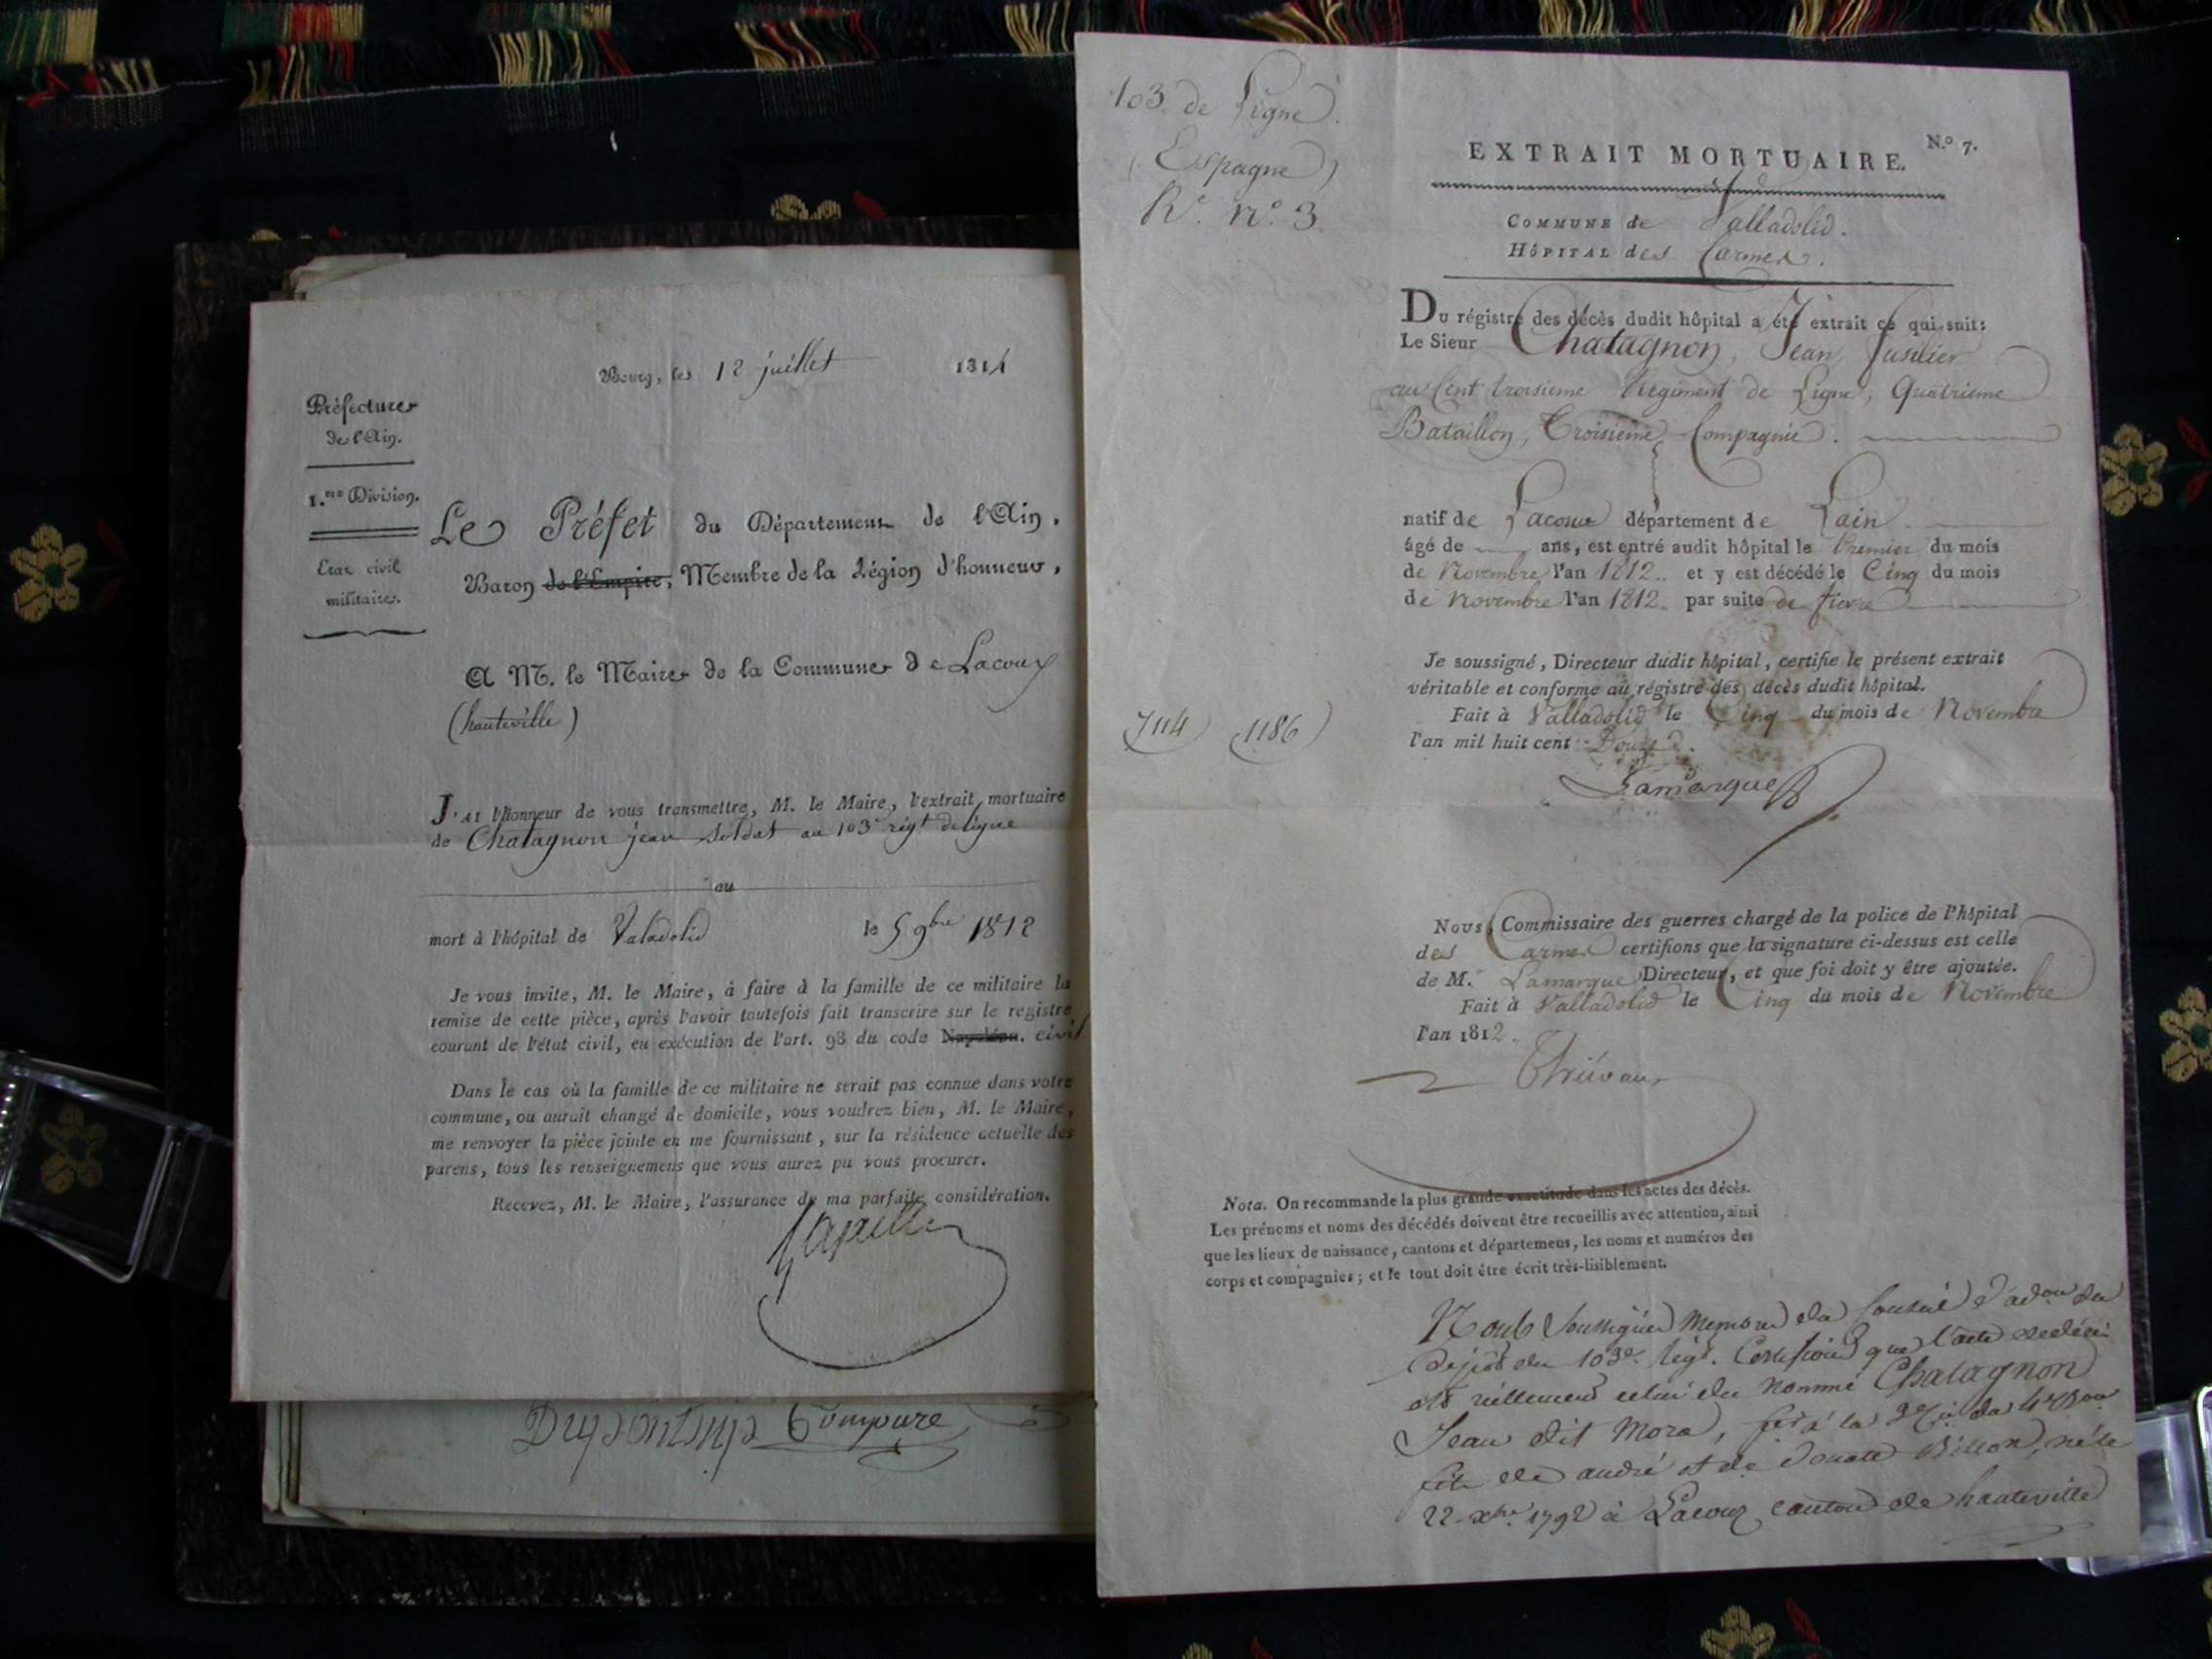 Bourg, le 12 juillet 1814
Préfecture
de l'Ain.
1.re Division.
Etat civil
militaire.
Le Préfet du Département de l'Ain,
Baron de l'Empire, Membre de la Légion d'honneur,
A M. le Maire de la Commune de Lacoux
(hauteville)
J'AI l'honneur de vous transmettre, M. le Maire, l'extrait mortuaire
de Chatagnon jean soldat au 103e régt de ligne
au
mort à l'hôpital de Valadolid le 5 9bre 1812
Je vous invite, M. le Maire, à faire à la famille de ce militaire la
remise de cette pièce, après l'avoir toutefois fait transcrire sur le registre
courant de l'état civil, en exécution de l'art. 98 du code Napoléon. civil
Dans le cas où la famille de ce militaire ne serait pas connue dans votre
commune, ou aurait changé de domicile, vous voudrez bien, M. le Maire,
me renvoyer la pièce jointe en me fournissant, sur la résidence actuelle des
parens, tous les renseignemens que vous aurez pu vous procurer.
Recevez, M. le Maire, l'assurance de ma parfaite considération.
Compare
103 de Ligne.
(Espagne)
Re. No. 3.
EXTRAIT MORTUAIRE. N.o 7.
COMMUNE de Valladolid.
HÔPITAL des Carmes.
DU régistre des décès dudit hôpital a été extrait ce qui suit:
Le Sieur Chatagnon, Jean, fusilier
au Cent troisieme Regiment de Ligne, Quatrieme
Bataillon, Troisieme Compagnie.
natif de Lacoux département de Lain
âgé de ans, est entré audit hôpital le Premier du mois
de Novembre l'an 1812. et y est décédé le Cinq du mois
de Novembre l'an 1812. par suite de fievre
Je soussigné, Directeur dudit hôpital, certifie le présent extrait
véritable et conforme au régistre des décès dudit hôpital.
Fait à Valladolid le Cinq du mois de Novembre
l'an mil huit cent Douze.
1186
Lamarque
Nous, Commissaire des guerres chargé de la police de l'hôpital
des Carmes certifions que la signature ci-dessus est celle
de M. Lamarque Directeur, et que foi doit y être ajoutée.
Fait à Valladolid le Cinq du mois de Novembre
l'an 1812.
Nota. On recommande la plus grande exactitude dans les actes des décès.
Les prénoms et noms des décédés doivent être recueillis avec attention, ainsi
que les lieux de naissance, cantons et départemens, les noms et numéros des
corps et compagnies; et le tout doit être écrit très-lisiblement.
Nous Soussignés Membres du Conseil d'adon du
Dépôt du 103e. régt. Certifions que l'acte de décès
est réellement celui du nommé Chatagnon
Jean dit Mora, à la 3e cie du 4e Bon
fils de andré et de né le
22 xbre 1792 à Lacoux canton de hauteville